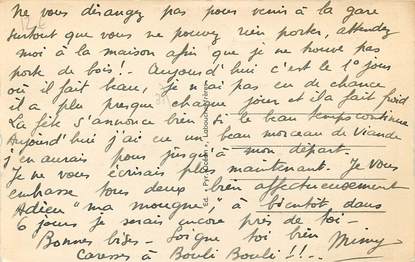 Ne vous dérangez pas pour venir à la gare
surtout que vous ne pouvez rien porter, attendez
moi à la maison afin que je ne trouve pas
porte de bois ! - Aujourd'hui c'est le 1° jour
où il fait beau, je n'ai pas eu de chance
il a plu presque chaque jour et il a fait froid
La fête s'annonce bien si le beau temps continue
Aujourd'hui j'ai eu un beau morceau de viande
j'en aurais pour jusqu'à mon départ.
Je ne vous écrirais plus maintenant. Je vous
embrasse tous deux bien affectueusement
Adieu "ma mougne," à bientôt dans
6 jours je serais encore près de toi -
Bonnes bises - Soigne toi bien Mimy
Caresses à Bouli Bouli !! -